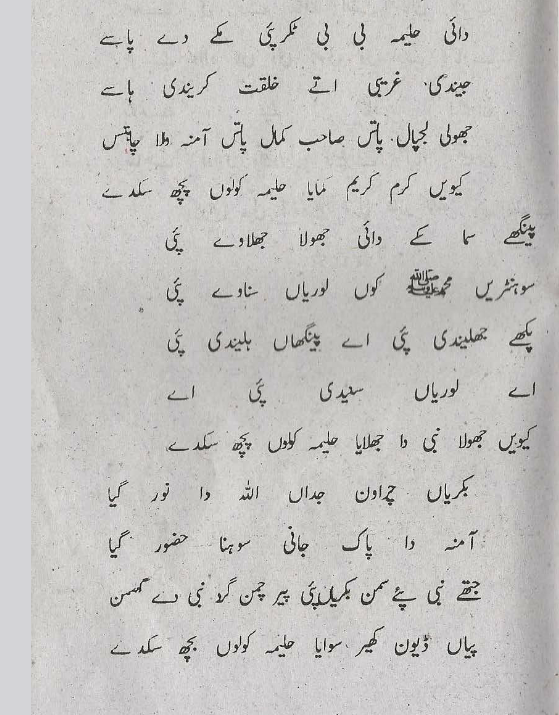 دائی حلیمہ بی بی ٹکر پئی مکے دے پاسے
جیندی غریبی اتے خلقت کریندی ہاسے
جھولی لجپال پاتس صاحب کمال پاتس آمنہ ولا چاتس
کیویں کرم کریم کمایا حلیمہ کولوں پچھ سکدے
پینگھے سما کے دائی جھولا جھلاوے پئی
سوہنٹریں محمد ﷺ کوں لوریاں سناوے پئی
پکھے جھلیندی پئی اے پینگھاں ہلیندی پئی
اے لوریاں سنیدی پئی اے
کیویں جھولا نبی دا جھلایا حلیمہ کولوں پچھ سکدے
بکریاں چراون جداں اللہ دا نور گیا
آمنہ دا پاک جانی سوہنا حضور گیا
جتھے نبی پئے سمن بکریاں پئی پیر چمن گرد نبی دے گھمن
پیاں ڈیون کھیر سوایا حلیمہ کولوں پچھ سکدے